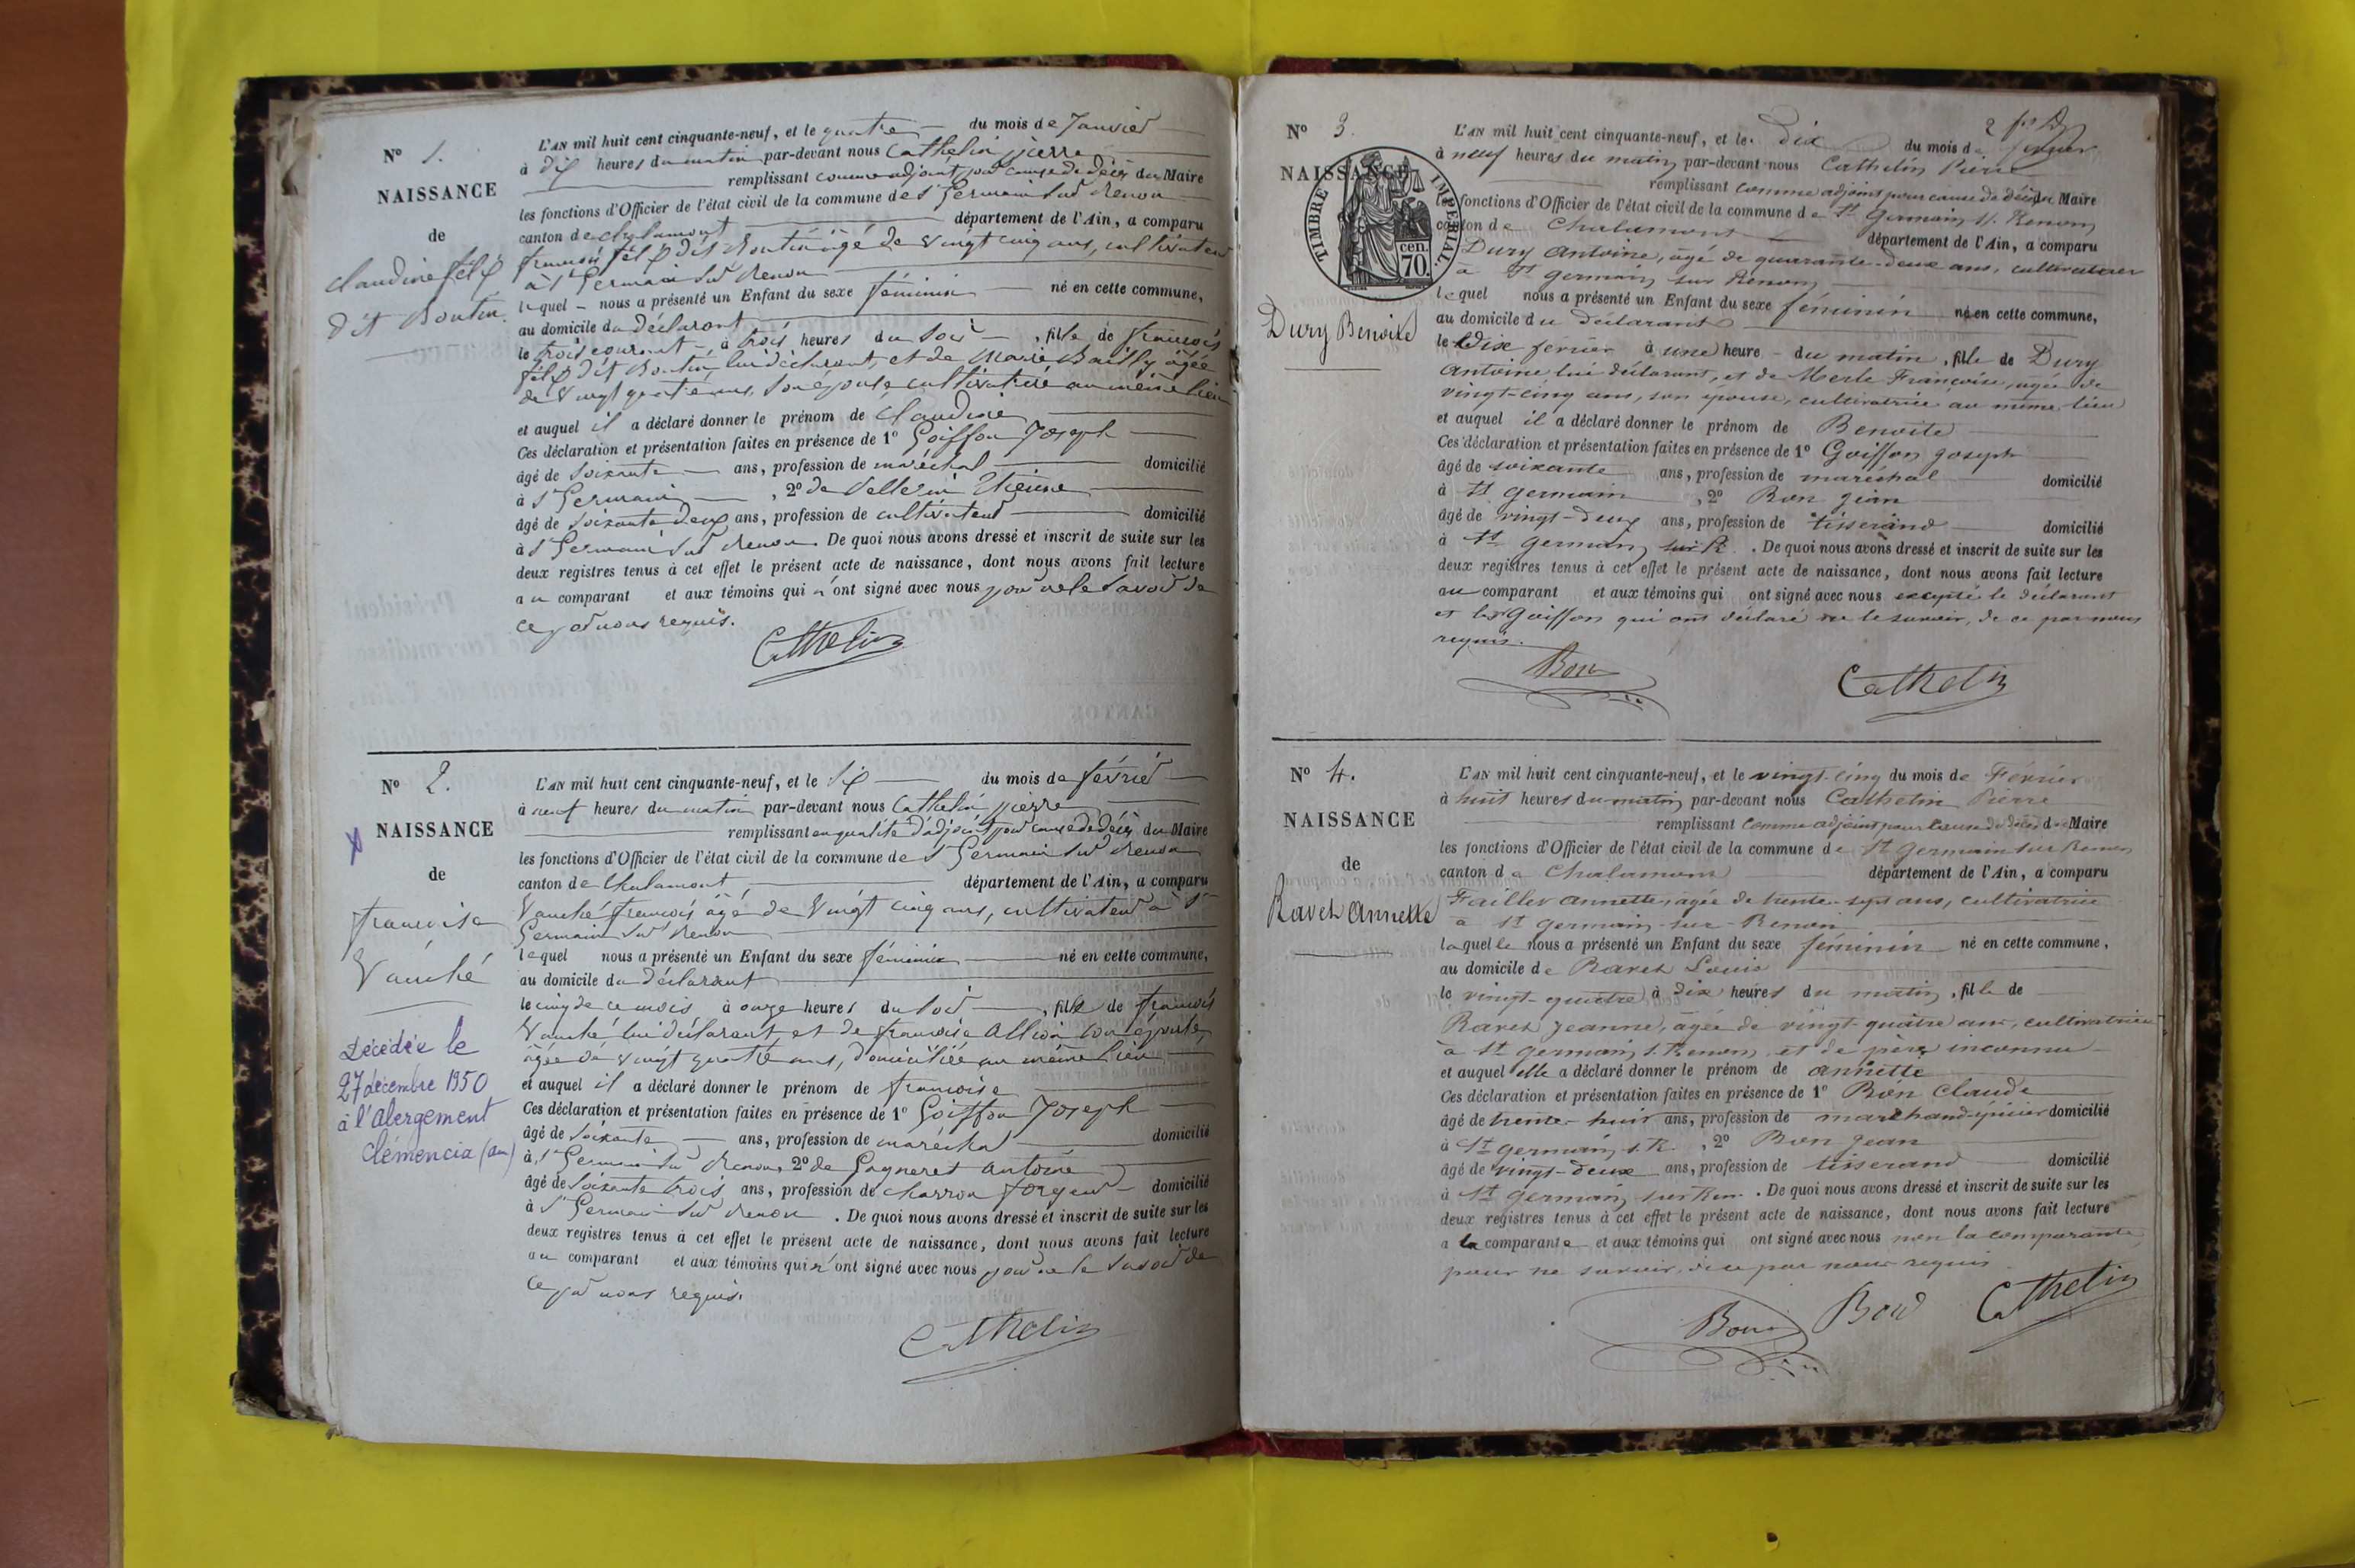 N° 1.
NAISSANCE
de
Claudine félix
dit Boutin
L'AN mil huit cent cinquante-neuf, et le quatre du mois de Janvier
à dix heures du matin par-devant nous Cathelin pierre
remplissant comme adjoint pour cause de décès du Maire
les fonctions d'Officier de l'état civil de la commune de St Germain sur Renon
canton de Chalamont département de l'Ain, a comparu
françois félix dit Boutin âgé de vingt cinq ans, cultivateur
à St Germain sur Renon
lequel nous a présenté un Enfant du sexe féminin né en cette commune,
au domicile du déclarant
le trois courant à trois heures du soir, fille de françois
félix dit Boutin, lui déclarant, et de Marie Bailly, âgée
de vingt quatre ans, son épouse cultivatrice au même lieu
et auquel il a déclaré donner le prénom de Claudine
Ces déclaration et présentation faites en présence de 1° Goiffon Joseph
âgé de soixante ans, profession de maréchal domicilié
à St Germain, 2° de Etienne
âgé de soixante deux ans, profession de cultivateur domicilié
à St Germain sur Renon. De quoi nous avons dressé et inscrit de suite sur les
deux registres tenus à cet effet le présent acte de naissance, dont nous avons fait lecture
au comparant et aux témoins qui n'ont signé avec nous pour ne le savoir de
ce par nous requis.
Cathelin
N° 2.
NAISSANCE
de
françoise
Vauché
Décédée le
27 décembre 1950
à l'Abergement
Clémencia (Ain)
L'AN mil huit cent cinquante-neuf, et le six du mois de février
à neuf heures du matin par-devant nous Cathelin pierre
remplissant en qualité d'adjoint pour cause de décès du Maire
les fonctions d'Officier de l'état civil de la commune de St Germain sur Renon
canton de Chalamont département de l'Ain, a comparu
Vauché françois âgé de vingt cinq ans, cultivateur à St
Germain sur Renon
lequel nous a présenté un Enfant du sexe féminin né en cette commune,
au domicile du déclarant
le cinq de ce mois à onze heures du soir, fille de françois
Vauché lui déclarant et de françoise son épouse,
âgée de vingt quatre ans, domiciliée au même lieu
et auquel il a déclaré donner le prénom de françoise
Ces déclaration et présentation faites en présence de 1° Goiffon Joseph
âgé de soixante ans, profession de maréchal domicilié
à St Germain sur Renon, 2° de Gagneret Antoine
âgé de soixante trois ans, profession de charron forgeur domicilié
à St Germain sur Renon. De quoi nous avons dressé et inscrit de suite sur les
deux registres tenus à cet effet le présent acte de naissance, dont nous avons fait lecture
au comparant et aux témoins qui n'ont signé avec nous pour ne le savoir de
ce par nous requis.
Cathelin
N° 3.
NAISSANCE
TIMBRE IMPERIAL.
70 cen.
Dury Benoite
L'AN mil huit cent cinquante-neuf, et le dix du mois de février
à neuf heures du matin par-devant nous Cathelin Pierre
remplissant comme adjoint pour cause de décès du Maire
les fonctions d'Officier de l'état civil de la commune de St Germain s. Renon
canton de Chalamont département de l'Ain, a comparu
Dury Antoine, âgé de quarante-deux ans, cultivateur
à St Germain sur Renon
lequel nous a présenté un Enfant du sexe féminin né en cette commune,
au domicile du déclarant
le dix février à une heure du matin, fille de Dury
Antoine lui déclarant, et de Merle Françoise, agée de
vingt-cinq ans, son épouse, cultivatrice au même lieu
et auquel il a déclaré donner le prénom de Benoite
Ces déclaration et présentation faites en présence de 1° Goiffon Joseph
âgé de soixante ans, profession de maréchal domicilié
à St Germain, 2° Bon Jean
âgé de vingt-deux ans, profession de tisserand domicilié
à St Germain sur R. De quoi nous avons dressé et inscrit de suite sur les
deux registres tenus à cet effet le présent acte de naissance, dont nous avons fait lecture
au comparant et aux témoins qui ont signé avec nous excepté le déclarant
et le Goiffon qui ont déclaré ne le savoir, de ce par nous
requis.
Bon Cathelin
N° 4.
NAISSANCE
de
Ravet Annette
L'AN mil huit cent cinquante-neuf, et le vingt-cinq du mois de Février
à huit heures du matin par-devant nous Cathelin Pierre
remplissant comme adjoint pour cause de décès du Maire
les fonctions d'Officier de l'état civil de la commune de St Germain sur Renon
canton de Chalamont département de l'Ain, a comparu
Failler Annette, agée de trente-sept ans, cultivatrice
à St Germain sur Renon
laquelle nous a présenté un Enfant du sexe féminin né en cette commune,
au domicile de Ravet Louis
le vingt-quatre à dix heures du matin, fille de
Ravet Jeanne, âgée de vingt-quatre ans, cultivatrice
à St Germain s. Renon, et de père inconnu
et auquel elle a déclaré donner le prénom de Annette
Ces déclaration et présentation faites en présence de 1° Bon Claude
âgé de trente-huit ans, profession de marchand-épicier domicilié
à St Germain s. R., 2° Bon Jean
âgé de vingt-deux ans, profession de tisserand domicilié
à St Germain sur Ren. De quoi nous avons dressé et inscrit de suite sur les
deux registres tenus à cet effet le présent acte de naissance, dont nous avons fait lecture
a la comparante et aux témoins qui ont signé avec nous non la comparante
pour ne savoir, de ce par nous requis
Bon Bon Cathelin